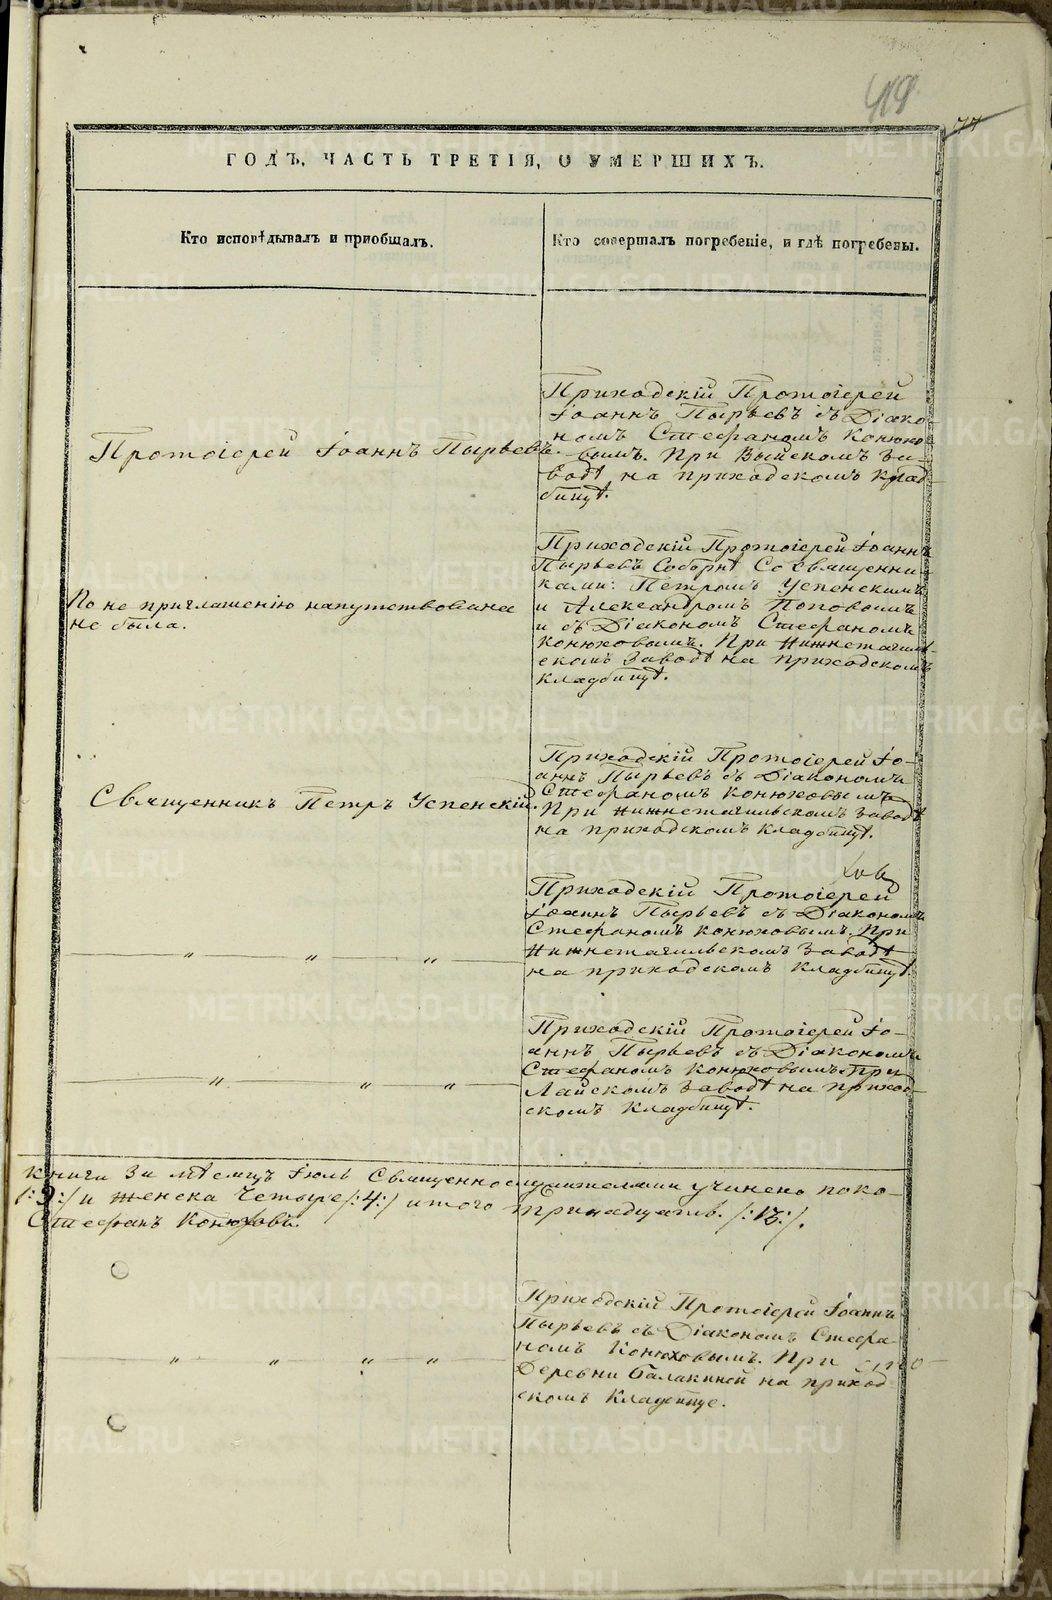 419
77
ГОДЪ, ЧАСТЬ ТРЕТІЯ, О УМЕРШИХЪ.
Кто исповѣдывалъ и приобщалъ.
Кто совершалъ погребеніе, и гдѣ погребены.
Протоіерей Іоаннъ Пырьевъ.
Приходскій Протоіерей
Іоаннъ Пырьевъ съ Діако-
номъ Стефаномъ Конюхо-
вымъ. При Выйскомъ За-
водѣ на приходскомъ клад-
бищѣ.
По не приглашенію напутствована
не была.
Приходскій Протоіерей Іоаннъ
Пырьевъ Соборнѣ Со Священни-
ками: Петромъ Успенскимъ
и Александромъ Поповымъ
и съ Діакономъ Стефаномъ
Конюховымъ. При Нижнетагиль-
скомъ Заводѣ на приходскомъ
кладбищѣ.
Священникъ Петръ Успенскій.
Приходскій Протоіерей Іо-
аннъ Пырьевъ съ Діакономъ
Стефаномъ Конюховымъ
При Нижнетагильскомъ Заводѣ
на приходскомъ кладбищѣ.
" " "
Приходскій Протоіерей
Іоаннъ Пырьевъ съ Діакономъ
Стефаномъ Конюховымъ. При
Нижнетагильскомъ Заводѣ
на приходскомъ Кладбищѣ.
" " "
Приходскій Протоіерей Іо-
аннъ Пырьевъ съ Діакономъ
Стефаномъ Конюховымъ При
Лайскомъ Заводѣ на приход-
скомъ кладбищѣ.
книги За мѣсяцъ Іюль Священнослужителями учинено поко-
/:9:/ и женска Четыре /:4:/ итого тринадцать. /:13:/.
Стефанъ Конюховъ.
" " " "
Приходскій Протоіерей Іоаннъ
Пырьевъ съ Діакономъ Стефа-
номъ Конюховымъ. При
Деревни Балакиной на приход
скомъ Кладбище.
METRIKI.GASO-URAL.RU